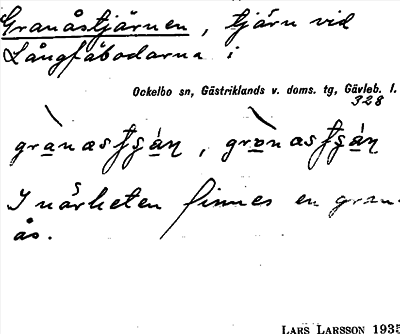 Granåstjärnen, tjärn vid
Långfäbodarna i
Ockelbo sn, Gästriklands v. doms. tg, Gävleb. l.
328
I närheten finnes en gran-
ås.
LARS LARSSON 1935